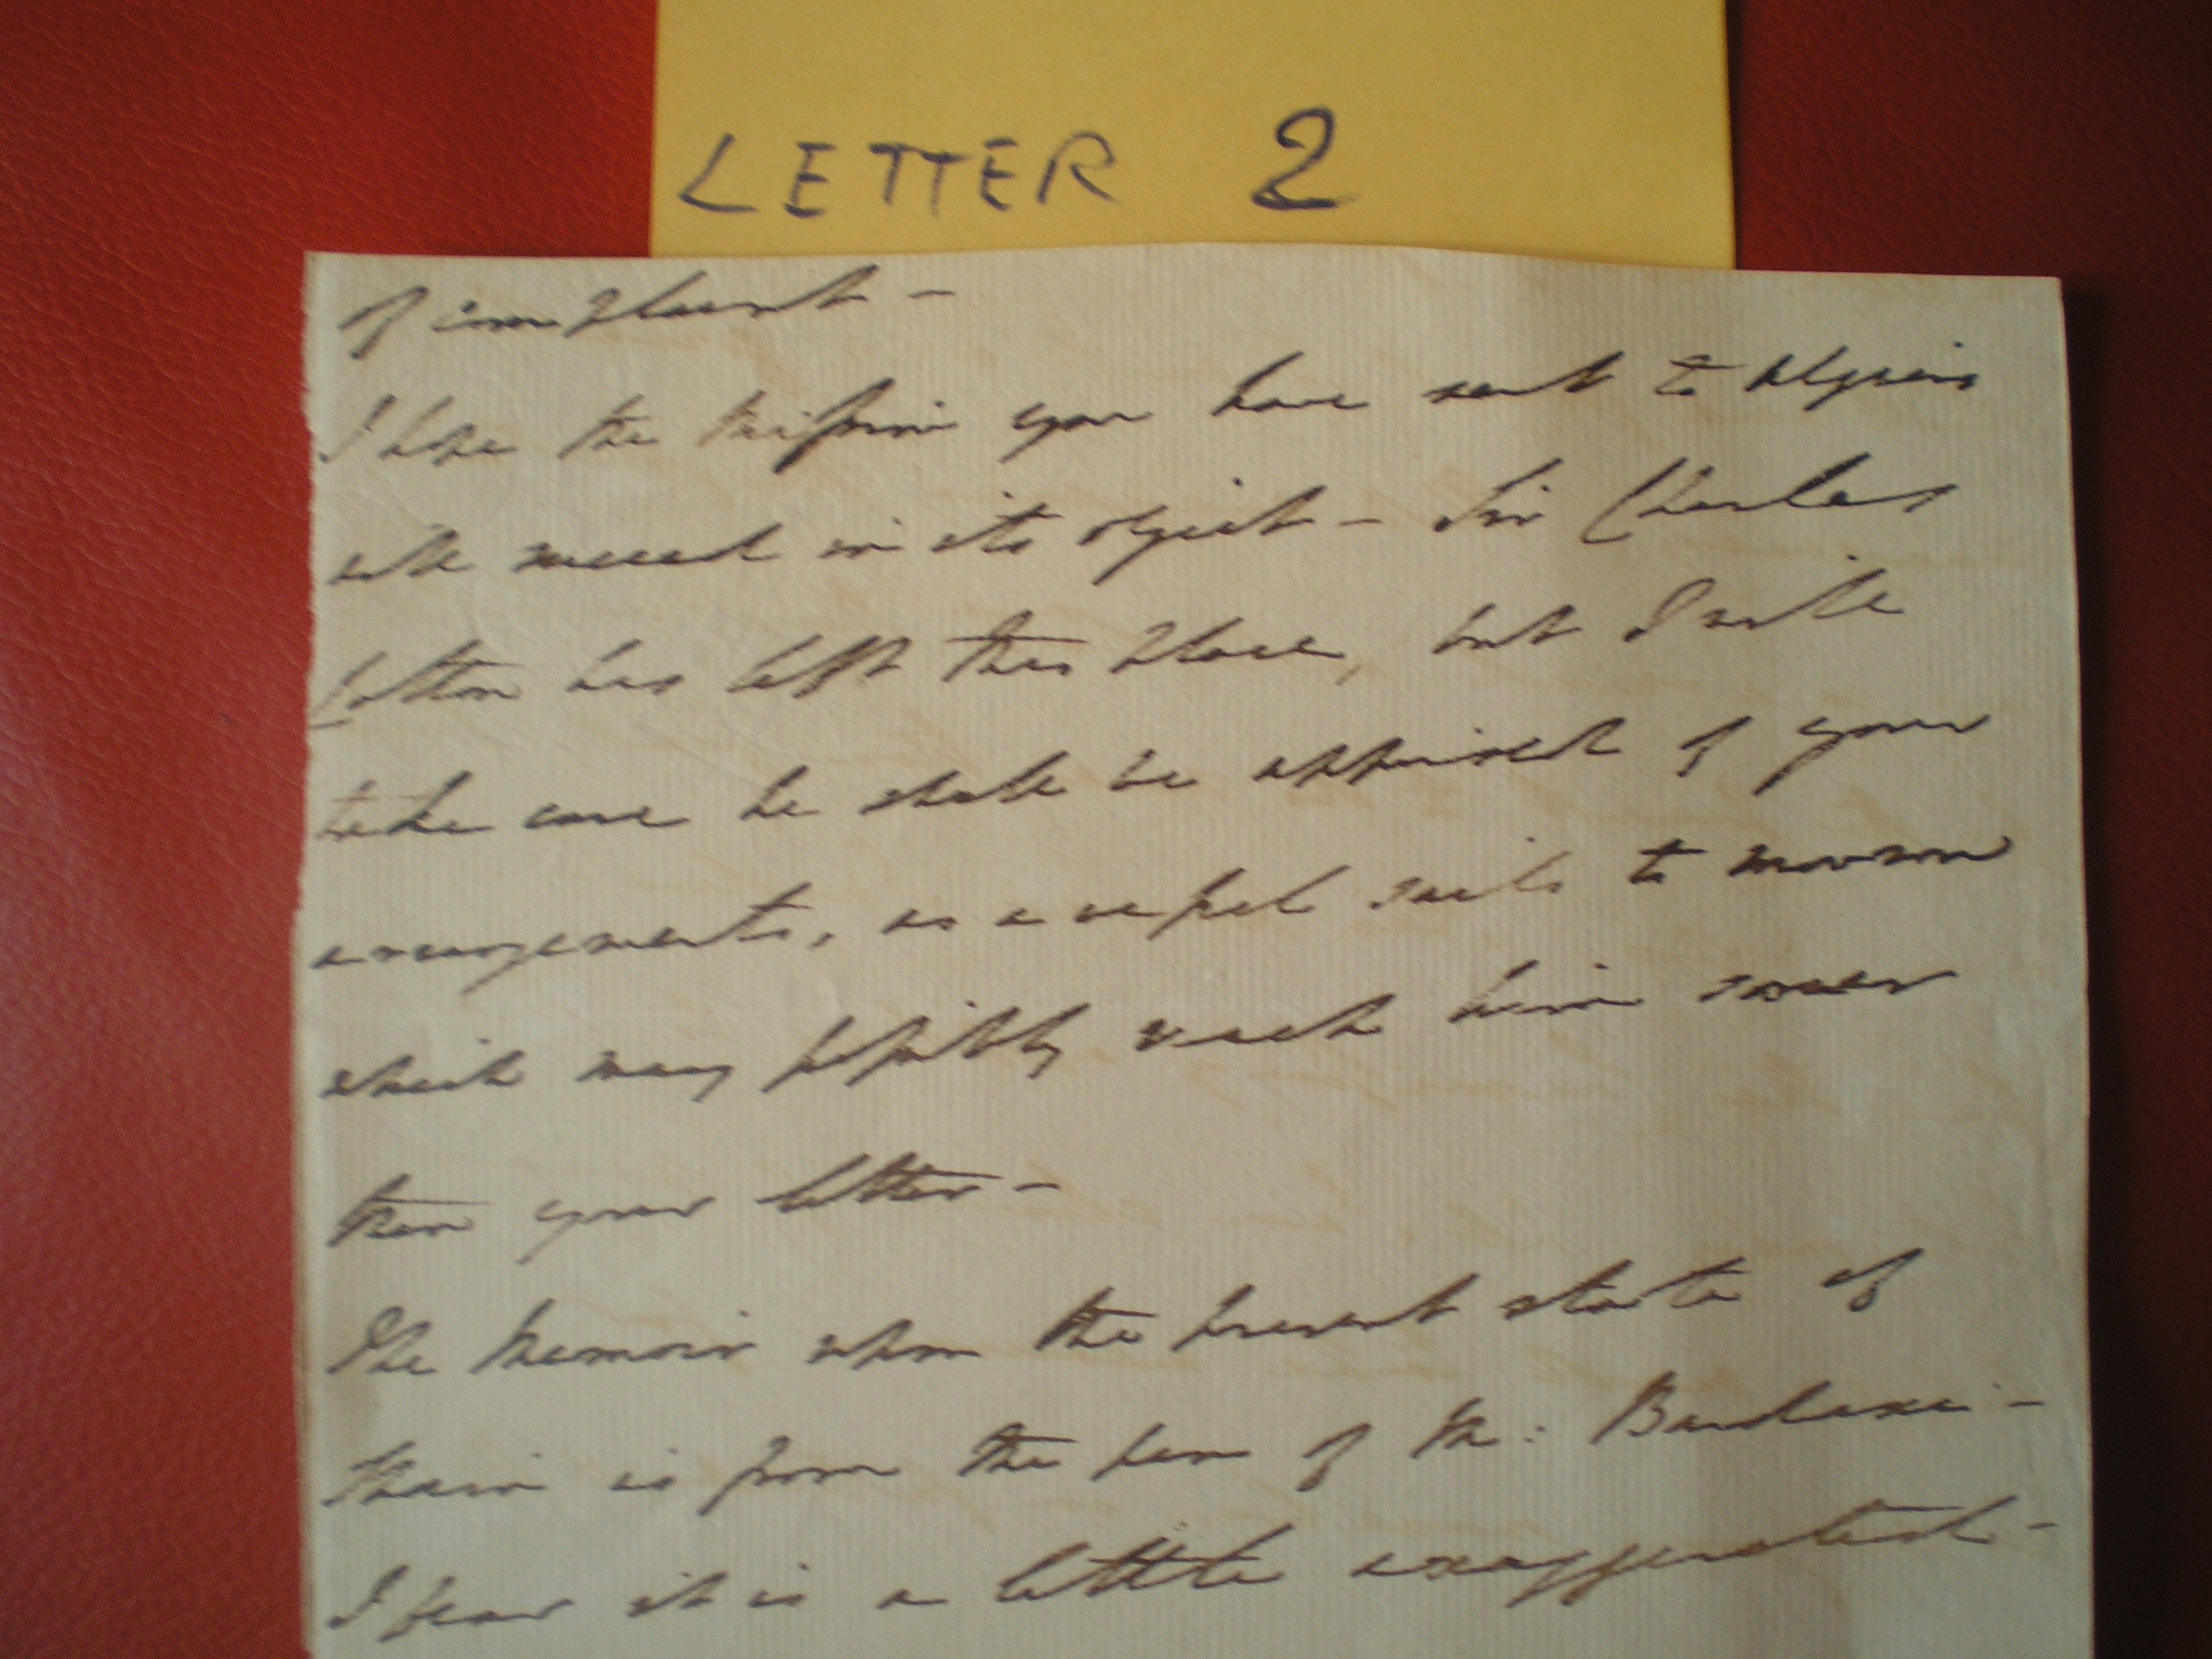 LETTER 2
of complaint -
I hope the Mission you have sent to Algiers
will succeed in its object - Sir Charles
Cotton has left this place, but I will
take care he shall be apprised of your
arrangements, as a vessel sails to morrow
which may possibly reach him sooner
than your letter -
The Memoir upon the present state of
is from the pen of Mr:
I fear it is a little exaggerated -